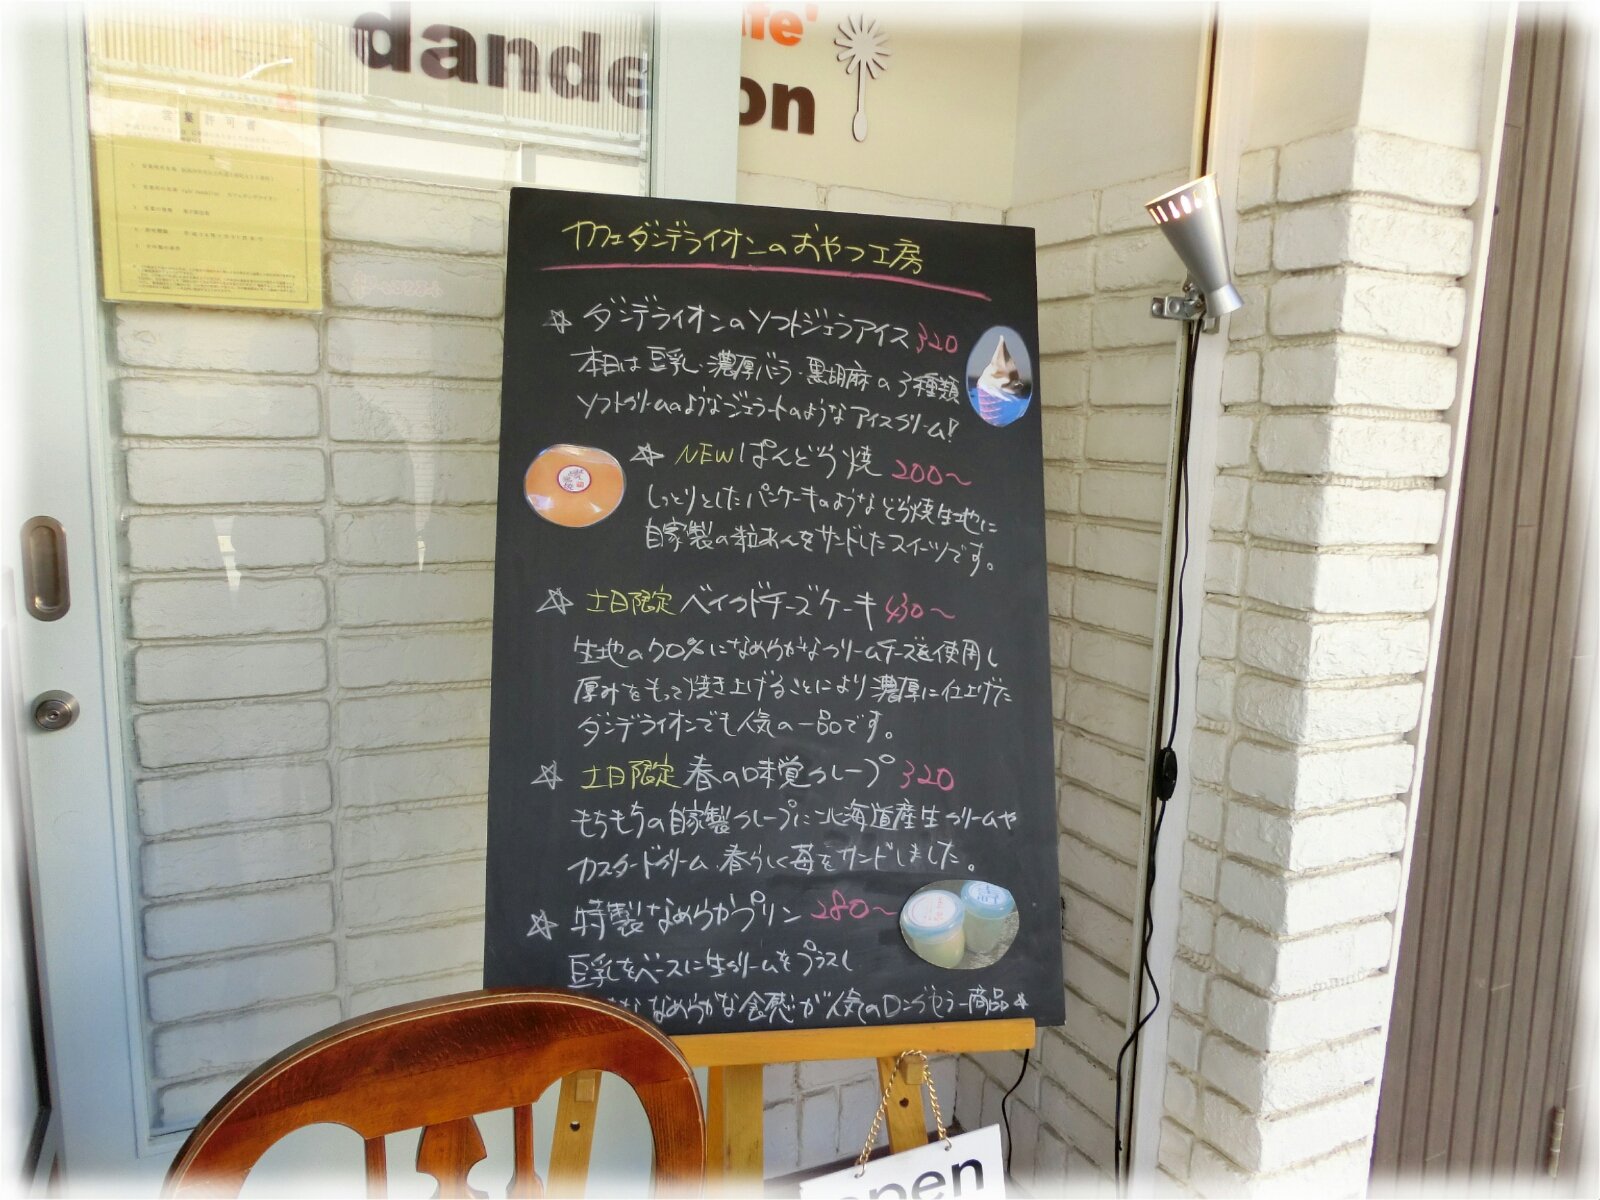 dande
on
営業許可書
カフェダンデライオンのおやつ工房
☆ ダンデライオンのソフトジェラアイス 320
本日は豆乳・濃厚バニラ・黒胡麻の3種類
ソフトクリームのようなジェラートのようなアイスクリーム!
☆ NEW ぱんどら焼 200~
しっとりとしたパンケーキのようなどら焼生地に
自家製の粒あんをサンドしたスイーツです。
☆ 土日限定 ベイクドチーズケーキ 430~
生地の70%になめらかなクリームチーズを使用し
厚みをもって焼き上げることにより濃厚に仕上げた
ダンデライオンでも人気の一品です。
☆ 土日限定 春の味覚クレープ 320
もちもちの自家製クレープに北海道産生クリームや
カスタードクリーム、春らしく苺をサンドしました。
☆ 特製なめらかプリン 280~
豆乳をベースに生クリームをプラスし
なめらかな食感が人気のロングセラー商品☆
open